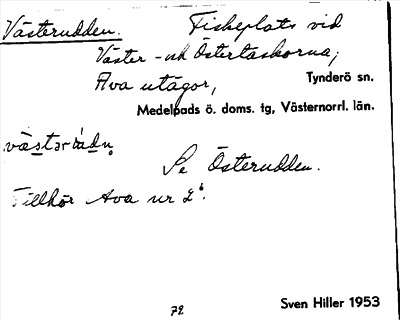 Västerudden. Fiskeplats vid
Väster- och Östertaskorna,
Ava utägor, Tynderö sn.
Medelpads ö. doms. tg, Västernorrl. län.
Se Österudden.
Tillhör Ava nr 2
72 Sven Hiller 1953